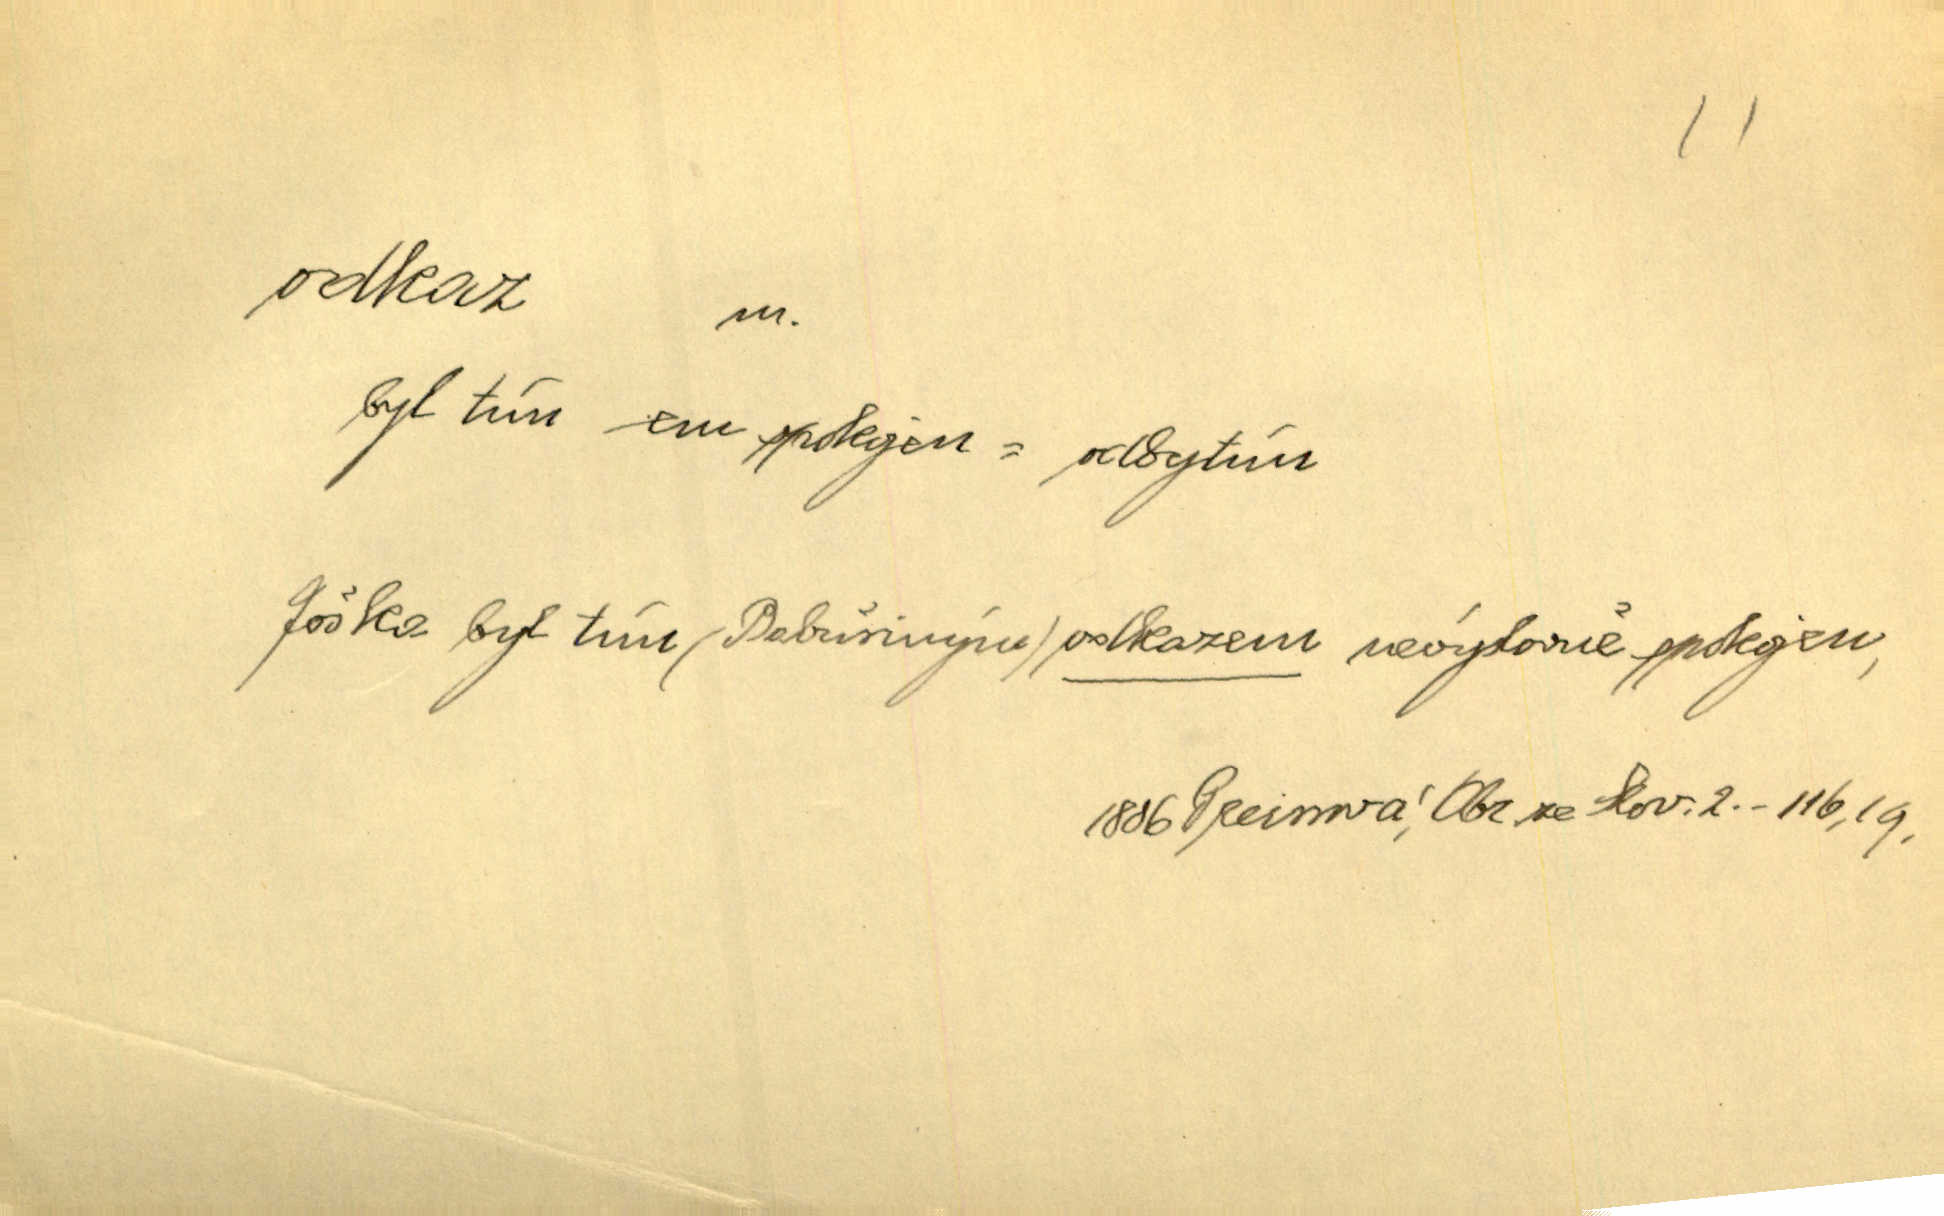 ( )
odkaz m.
byl tím -em spokojen = odbytím
Joška byl tím (Babuřiným) odkazem nevýslovně spokojen,
1886 Preissová, Obr. ze Slov. 2. - 116, 19.